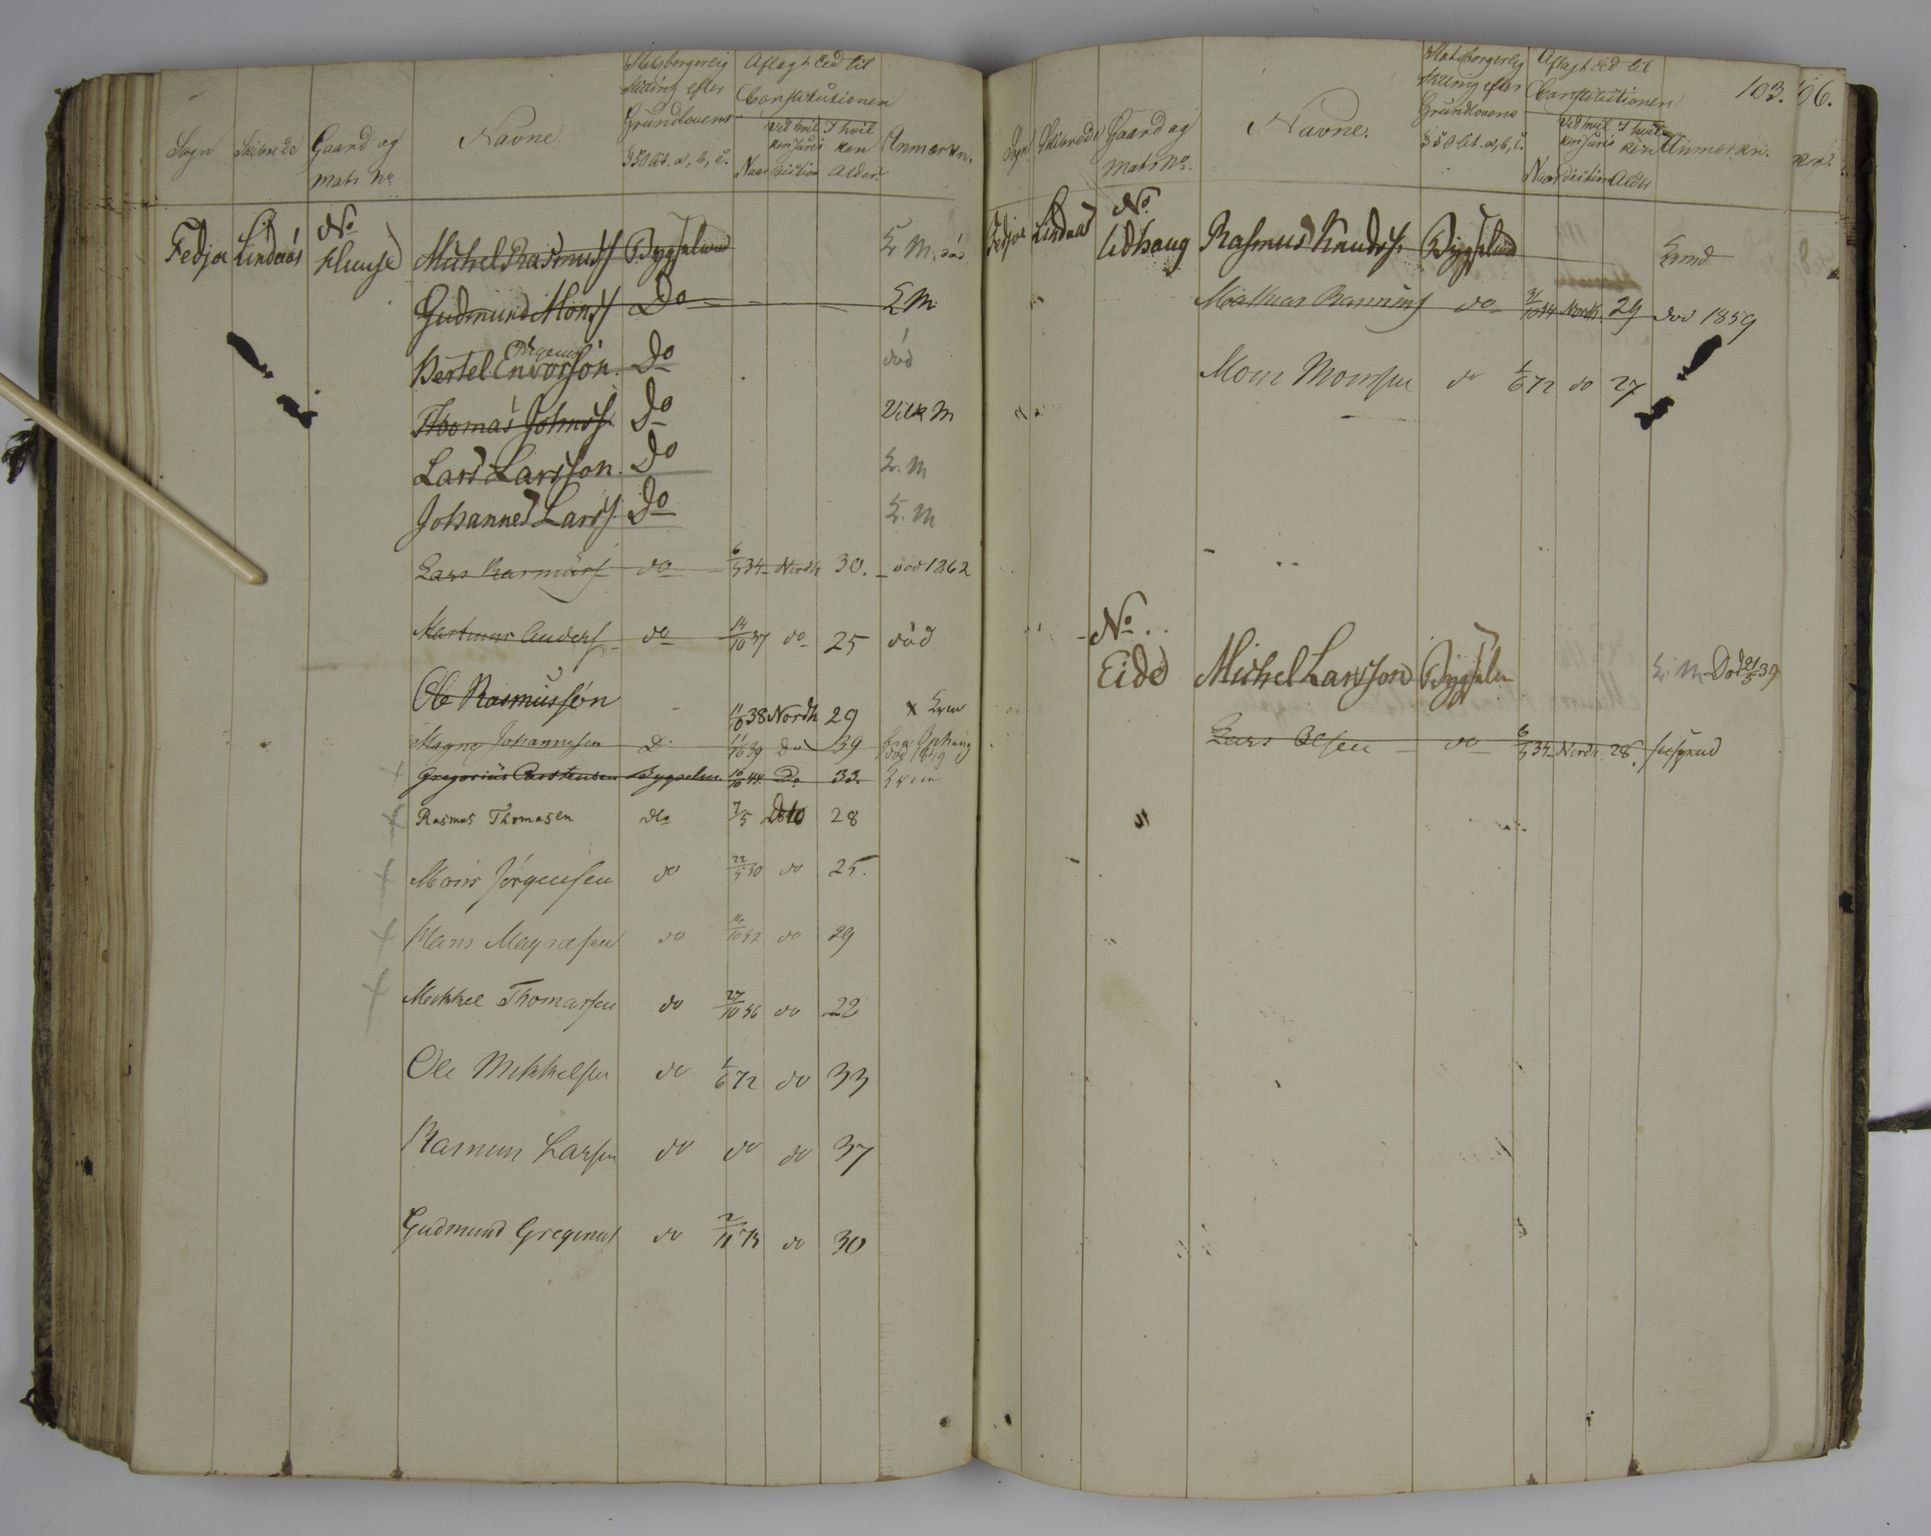 Sogn Skibrede Gaard og Mats No Navne. Statsborgerlig Stilling efter Grundlovens § 50 lit. a, b, c. Aflagt Eed til Constitutionen Naar Ved hvilken Juris diction I hvilken Alder. Anmærkn.
Fedjæ Lindaas No
Husе Michel Rasmuss Bygselmd E. M. død
Gudmund Monss Do E M
Bertel Endorsøn Do død
Thomas Johnss Do M
Lars Larsson. Do E. M
Johannes Larss. Do E. M
Lars Rasmuss do 6/5 34 Nordh 30. død 1862
Martinus Anders do 14/10 37 do 25 død
Ole Rasmussøn 38 Nordh 29 x
Magne Johannesen D. 11/10 39 Do 39 fra
Gregorius Carstensen Bygselm 16/10 44. Do 33.
Rasmus Thomasen do 7/5 Dito 28
Mons Jørgensen do 22/5 50 do 25.
Hans Magnesen do 14/10 52 do 29
Mikkel Thomassen do 27/10 56 do 22
Ole Mikkelsen do 1/6 72 do 33
Rasmus Larsen do do do 37
Gudmund Gregorius do 2/11 73 do 30
103. 106.
Sogn Skibrede Gaard og Mats No. Navne. Statsborgerlig Stilling efter Grundlovens § 50 lit. a, b, c. Aflagt Eed til Constitutionen Naar Ved hvilken Juris diction I hvilken Alder Anmærkn.
Fedjæ Lindaas No
Udhaug Rasmus Knudss. Bygselmd
Mathias Rasmuss do 44 Nordh. 29 død 1859
Mons Monsen do 1/6 72 do 27
No.
Eide Michel Larsson Bygselm E. M. Død 21/5 39
Lars Olsen do 6/5 34 Nordh. 28.